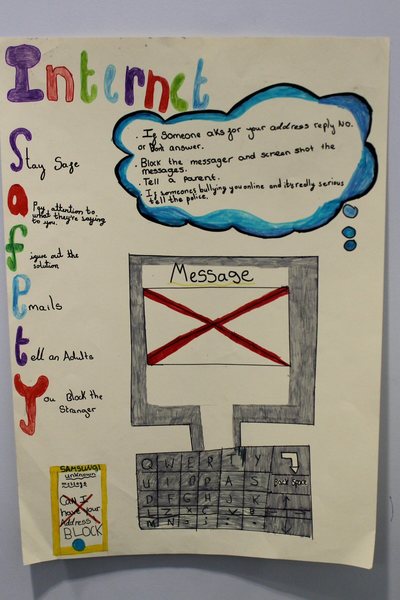 Internet
Safety
Stay Safe
Pay attention to
what they're saying
to you.
Figure out the
solution
Emails
Tell an Adults
You Block the
Stranger
. If someone aks for your address reply No.
or Dont answer.
. Block the messager and screen shot the
messages.
. Tell a parent.
. If someones bullying you online and it's really serious
tell the police.
Message
Q W E R T Y
U I O P A S
D F G H J K
L Z X C V B
M N
Back Space
SAMSUNG
unknown
message
Can I
have your
Address
BLOCK